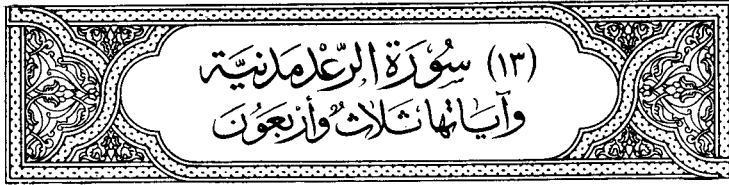 (١٣) سُورَةُ الرَّعْدِ مَدَنِيَّة
وَآيَاتُهَا ثَلَاثٌ وَأَرْبَعُونَ